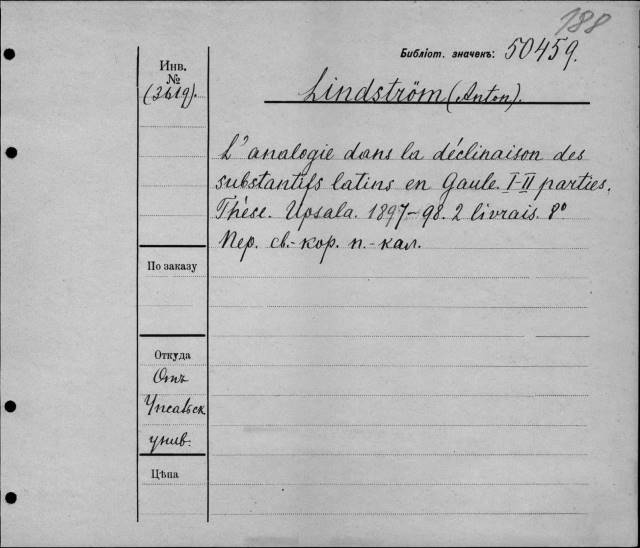 188
Библіот. значекъ: 50459.
Инв.
№
(2619).
Lindström (Anton).
L'analogie dans la déclinaison des
substantifs latins en Gaule. I-II parties.
Thèse. Upsala. 1897-98. 2 livrais. 8°
Пер. св.-кор. п.-кал.
По заказу
Откуда
Отъ
Упсальск
унив.
Цѣна